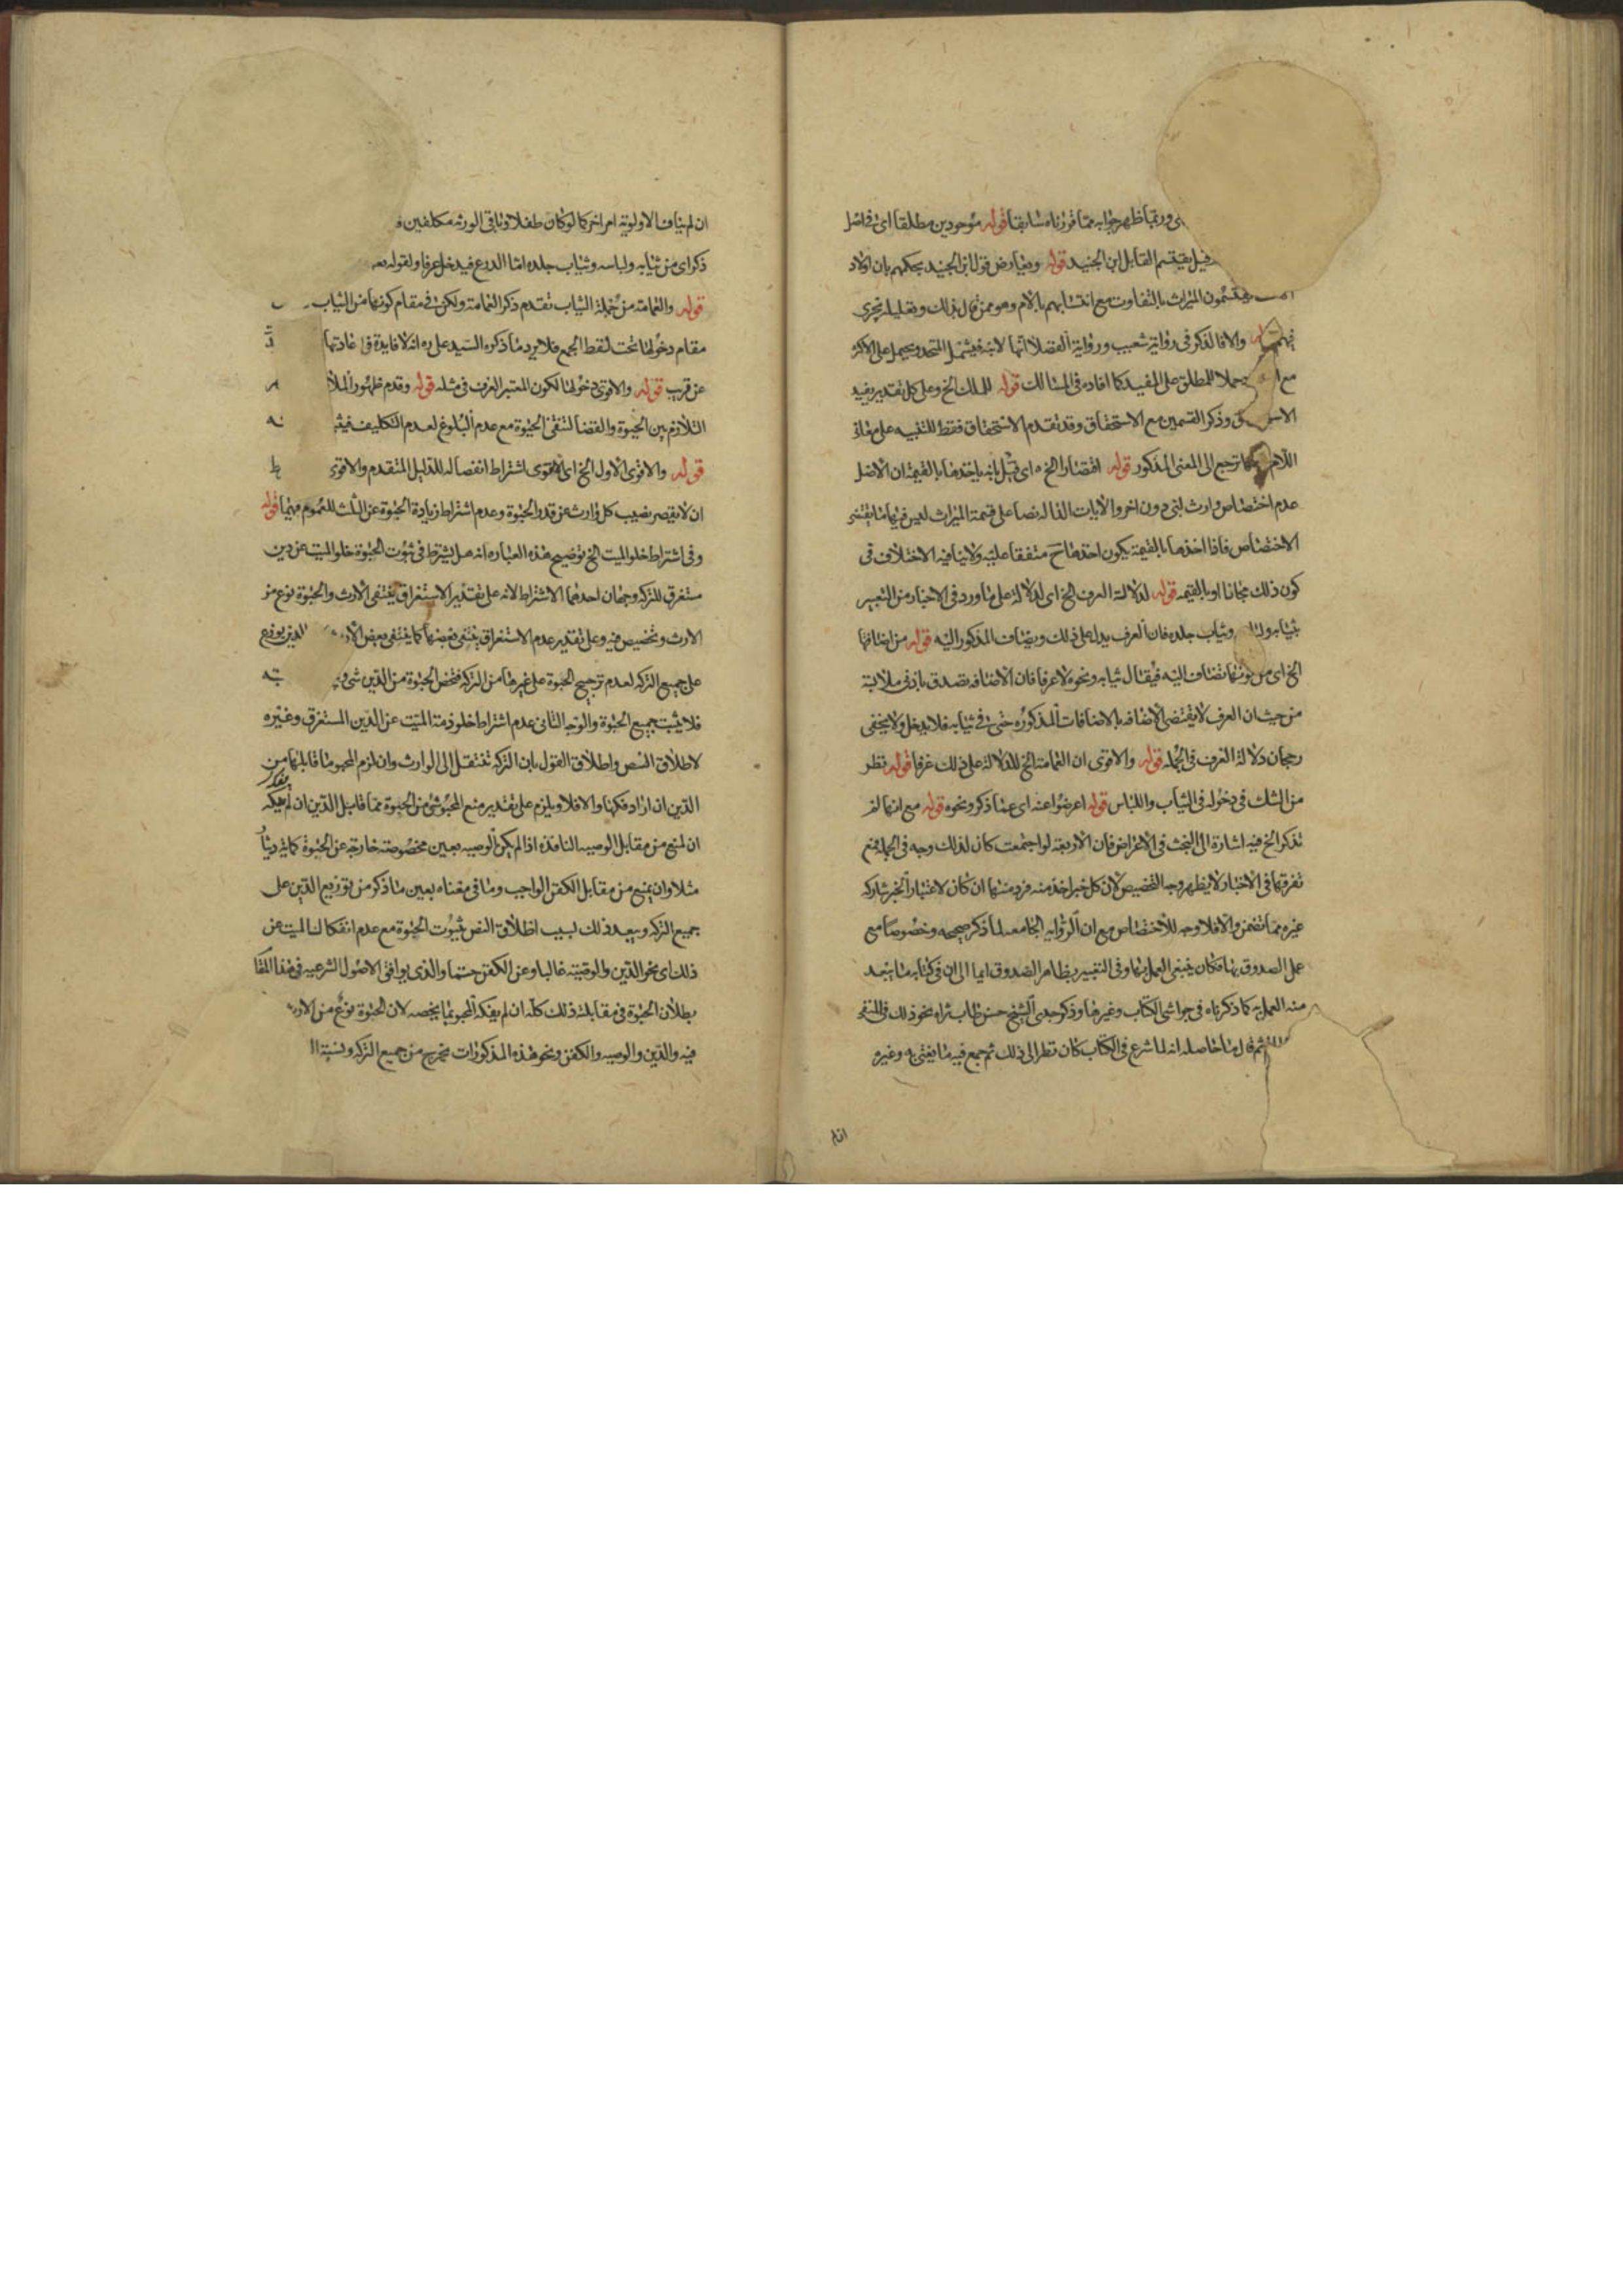 وربما ظهر جوابه مما قررناه سابقا قوله موجودين مطلقا اى فاضل
قيل يقسم القايل ابن الجنيد قوله ويعارض قول ابن الجنيد بحكمهم بان اولاد
يقتسمون الميراث بالتفاوت مع انتسابهم بالام وهو ممن قال بذلك وتعليله يجرى
والا فالذكر فى رواية شعيب ورواية الفضلا انها لابنه فيشمل المتحد ويحمل على الاكثر
مع حملا للمطلق على المفيد كما افاده فى المسالك قوله للملك الخ وعلى كل تقدير يفيد
وذكر القسمين مع الاستحقاق وقد تقدم الاستحقاق فقط للتنبيه على معانى
اللام ترجع الى المعنى المذكور قوله اقتصارا الخ اى قيل بانه ياخذها بالقيمة ان الاصل
عدم اختصاص وارث لشى دون اخر والايات الداله نصا على قسمة الميراث ليس فيها ما يقتضى
الاختصاص فاذا اخذها بالقيمة يكون اخذها ح متفقا عليه ولا ينافيه الاختلاف فى
كون ذلك مجانا او بالقيمه قوله لدلالة العرف الخ اى لدلالته على ما ورد فى الاخبار من التعبير
بثيابه وثياب جلده فان العرف يدل على ذلك ويضاف المذكور اليه قوله من اضافتها
الخ اى من كونها تضاف اليه فيقال ثيابه ونحوه لا عرفا فان الاضافه تصدق بادنى ملابسة
من حيث ان العرف لا يقتضى الاضافه بالاضافات المذكوره حتى فى ثيابه فلا يدخل ولا يخفى
رجحان دلالة العرف فى الجمله قوله والاقوى ان العمامة الخ للدلالة على ذلك عرفا قوله نظر
من الشك فى دخوله فى الثياب واللباس قوله اعرضوا عنه اى عما ذكر ونحوه قوله مع انها لم
تذكر الخ فيه اشارة الى البحث فى الاعراض فان الاربعه لو اجتمعت كان لذلك وجه فى الجمله ومع
تفرقها فى الاخبار لا يظهر وجه التخصيص لان كل خبر اخذ منه فرد منها ان كان لاعتبار الخبر شاركه
غيره مما تضمن والا فلا وجه للاختصاص مع ان الروايه الجامعه لما ذكر صحيحه وخصوصا مع
عمل الصدوق بها فكان ينبغى العمل بها وفى التعبير بظاهر الصدوق ايما الى ان فى كتابه ما يبعد
منه العمل به كما ذكرناه فى حواشى الكتاب وغيرها وذكر جدى الشيخ حسن طاب ثراه نحو ذلك فى المنتقى
ثم قال ما حاصله انه لما شرع فى الكتاب كان نظر الى ذلك ثم جمع فيه ما يفتى به وغيره
ان لم
ان لم يناف الاولوية امر اخر كما لو كان طفلا وباقى الورثه مكلفين
ذكر اى من ثيابه ولباسه وثياب جلده اما الدرع فيدخل عرفا ولقوله
قوله والعمامة من جملة الثياب تقدم ذكر العمامة ولكن فى مقام كونها من الثياب
مقام دخولها تحت لفظ الجمع فلا يرد ما ذكره السيد على ره انه لا فايدة فى اعادتها
عن قريب قوله والاقوى دخولها لكون المعتبر العرف فى مثله قوله وقدم ظهور الملا
التلازم بين الحبوة والقضا لتنتفى الحبوة مع عدم البلوغ لعدم التكليف
قوله والاقوى الاول الخ اى الاقوى اشتراط انفصاله للدليل المتقدم والاقوى
ان لا يقصر نصيب كل وارث عن قدر الحبوة وعدم اشتراط زيادة الحبوة عن الثلث للعموم فيهما قوله
وفى اشتراط خلو الميت الخ توضيح هذه العباره انه هل يشترط فى ثبوت الحبوة خلو الميت عن دين
مستغرق للتركه وجهان احدهما الاشتراط لانه على تقدير الاستغراق ينتفى الارث والحبوة نوع من
الارث وتخصيص فيه وعلى تقدير عدم الاستغراق ينتفى بعضها كما ينتفى بعض الارث الدين يوزع
على جميع التركه لعدم ترجيح الحبوة على غيرها من التركه فتخص الحبوة من الدين شى
فلا يثبت جميع الحبوة والوجه الثانى عدم اشتراط خلو ذمة الميت عن الدين المستغرق وغيره
لاطلاق النص واطلاق القول بان التركه تنتقل الى الوارث وان لزم المحبو ما قابلها من
الدين ان اراد فكها والا فلا ويلزم على تقدير منع المحبو شى من الحبوة مما قابل الدين ان لم يفكه
ان لمنع من مقابل الوصيه النافذه اذا لم يكن الوصيه بعين مخصوصة خارجة عن الحبوة كماية دينار
مثلا وان يمنع من مقابل الكفن الواجب وما فى معناه بعين ما ذكر من توزيع الدين على
جميع التركه ويبعد ذلك بسبب اطلاق النص بثبوت الحبوة مع عدم انفكاك الميت عن
ذلك اى نحو الدين والوصيته غالبا وعن الكفن حتما والذى يوافق الاصول الشرعيه فى هذا المقام
بطلان الحبوة فى مقابلة ذلك كله ان لم يفكه المحبو بما يخصه لان الحبوة نوع من الارث
فيه والدين والوصيه والكفن ونحو هذه المذكورات تخرج من جميع التركه ونسبة